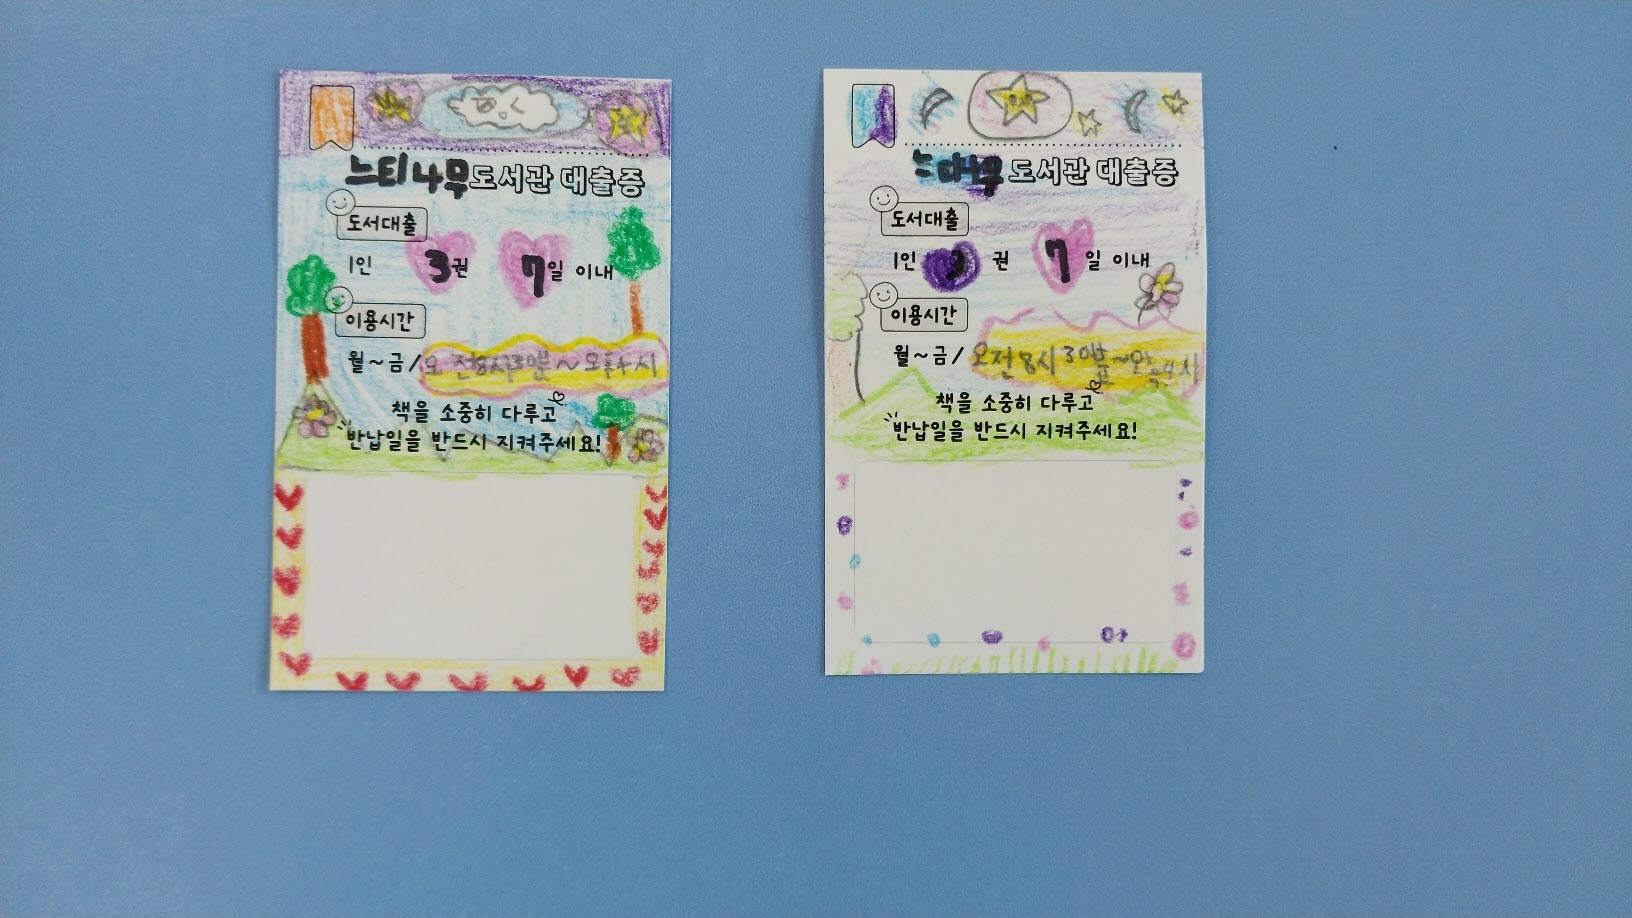 느티나무도서관 대출증
도서대출
1인 3권 7일 이내
이용시간
월~금/오전8시30분~오후4시
책을 소중히 다루고
반납일을 반드시 지켜주세요!
느티나무 도서관 대출증
도서대출
1인 3 권 7 일 이내
이용시간
월~금/오전8시30분~오후4시
책을 소중히 다루고
반납일을 반드시 지켜주세요!